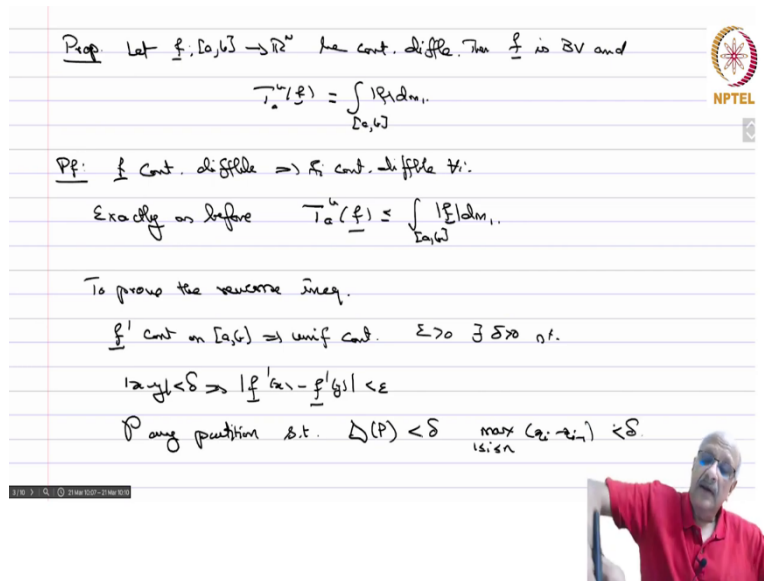 Prop. Let f : [a,b] → ℝᴺ be cont. diffle. Then f is BV and
Tₐᵇ(f) = ∫ |f|dm₁.
[a,b]
NPTEL
Pf: f cont. diffble ⇒ fᵢ cont. diffble ∀i.
Exactly as before Tₐᵇ(f) ≤ ∫ |f|dm₁.
[a,b]
To prove the reverse ineq.
f' cont on [a,b] ⇒ unif cont. ε>0 ∃ δ>0 s.t.
|x-y|<δ ⇒ |f'(x) - f'(y)| < ε
P any partition s.t. Δ(P) < δ max (xᵢ - xᵢ₋₁) < δ.
1≤i≤n
3/10 21 Mar 10:07 - 21 Mar 10:10